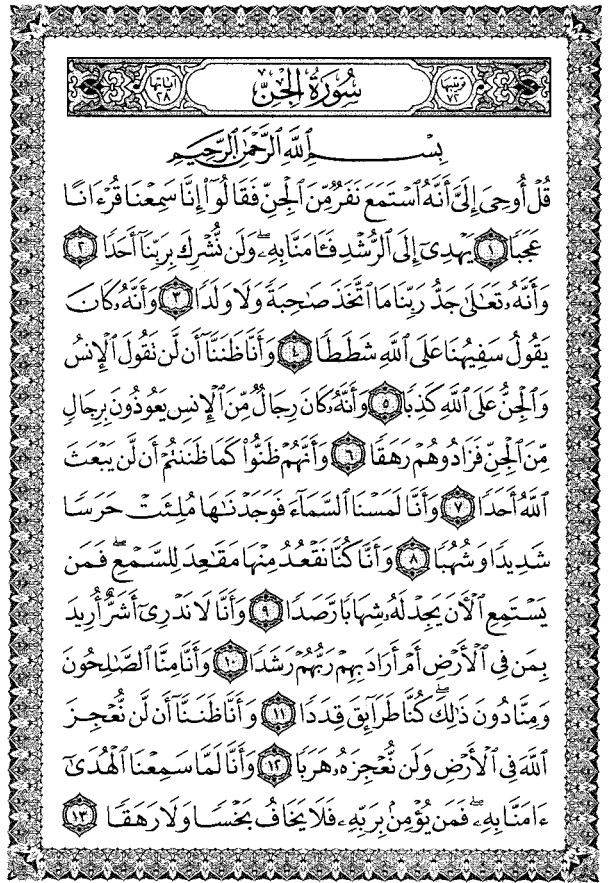 ترتيبها ٧٢ سُورَةُ الجِنِّ آياتها ٢٨
بِسْمِ ٱللَّهِ ٱلرَّحْمَٰنِ ٱلرَّحِيمِ
قُلْ أُوحِىَ إِلَىَّ أَنَّهُ ٱسْتَمَعَ نَفَرٌ مِّنَ ٱلْجِنِّ فَقَالُوٓا۟ إِنَّا سَمِعْنَا قُرْءَانًا
عَجَبًا ١ يَهْدِىٓ إِلَى ٱلرُّشْدِ فَـَٔامَنَّا بِهِۦ ۖ وَلَن نُّشْرِكَ بِرَبِّنَآ أَحَدًا ٢
وَأَنَّهُۥ تَعَٰلَىٰ جَدُّ رَبِّنَا مَا ٱتَّخَذَ صَٰحِبَةً وَلَا وَلَدًا ٣ وَأَنَّهُۥ كَانَ
يَقُولُ سَفِيهُنَا عَلَى ٱللَّهِ شَطَطًا ٤ وَأَنَّا ظَنَنَّآ أَن لَّن نَقُولَ ٱلْإِنسُ
وَٱلْجِنُّ عَلَى ٱللَّهِ كَذِبًا ٥ وَأَنَّهُۥ كَانَ رِجَالٌ مِّنَ ٱلْإِنسِ يَعُوذُونَ بِرِجَالٍ
مِّنَ ٱلْجِنِّ فَزَادُوهُمْ رَهَقًا ٦ وَأَنَّهُمْ ظَنُّوا۟ كَمَا ظَنَنتُمْ أَن لَّن يَبْعَثَ
ٱللَّهُ أَحَدًا ٧ وَأَنَّا لَمَسْنَا ٱلسَّمَآءَ فَوَجَدْنَٰهَا مُلِئَتْ حَرَسًا
شَدِيدًا وَشُهُبًا ٨ وَأَنَّا كُنَّا نَقْعُدُ مِنْهَا مَقَٰعِدَ لِلسَّمْعِ ۖ فَمَن
يَسْتَمِعِ ٱلْـَٔانَ يَجِدْ لَهُۥ شِهَابًا رَّصَدًا ٩ وَأَنَّا لَا نَدْرِىٓ أَشَرٌّ أُرِيدَ
بِمَن فِى ٱلْأَرْضِ أَمْ أَرَادَ بِهِمْ رَبُّهُمْ رَشَدًا ١٠ وَأَنَّا مِنَّا ٱلصَّٰلِحُونَ
وَمِنَّا دُونَ ذَٰلِكَ ۖ كُنَّا طَرَآئِقَ قِدَدًا ١١ وَأَنَّا ظَنَنَّآ أَن لَّن نُّعْجِزَ
ٱللَّهَ فِى ٱلْأَرْضِ وَلَن نُّعْجِزَهُۥ هَرَبًا ١٢ وَأَنَّا لَمَّا سَمِعْنَا ٱلْهُدَىٰٓ
ءَامَنَّا بِهِۦ ۖ فَمَن يُؤْمِنۢ بِرَبِّهِۦ فَلَا يَخَافُ بَخْسًا وَلَا رَهَقًا ١٣